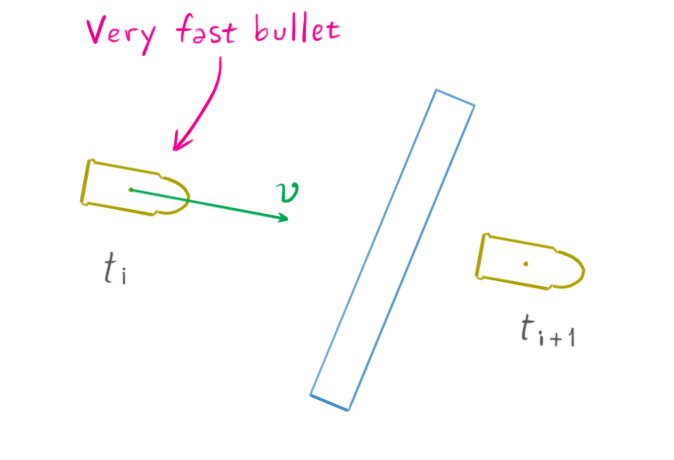 Very fast bullet
v
t_i
t_{i+1}